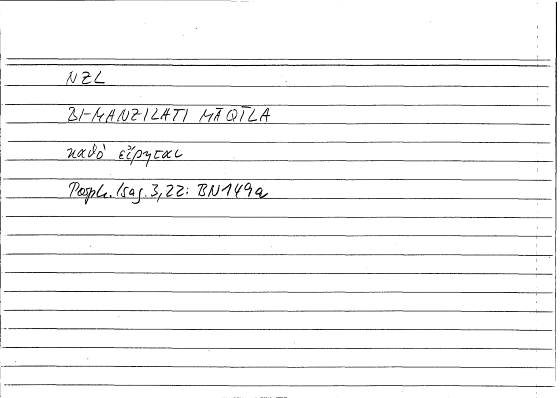 NZL
BI-MANZILATI MĀQĪLA
καθό εἴρηται
Porph. Isag. 3,22: BN149a